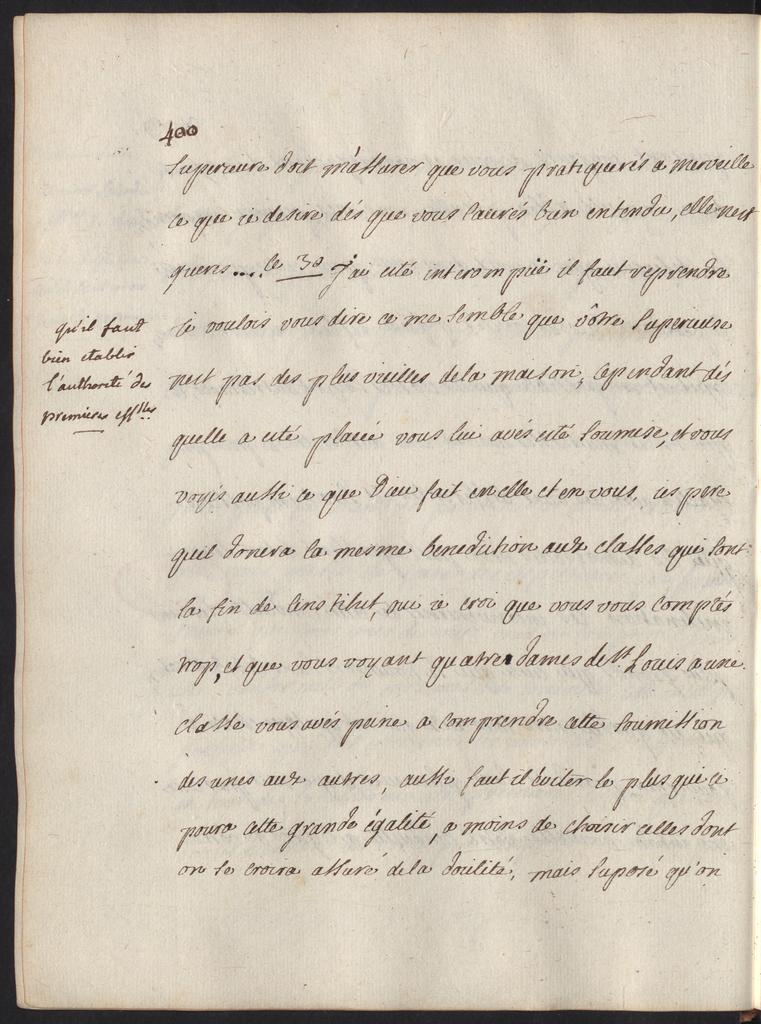 400
superieure doit m'assurer que vous pratiquerés a merveille
ce que ie desire dés que vous l'aurés bien entendu, elle nest
queris.... le 30 J'ai eté interompüe il faut reprendre
ie voulois vous dire ce me semble que vôtre superieure
nest pas des plus vieilles dela maison, cependant dés
quelle a eté placée vous lui avés eté soumise, et vous
voyés aussi ce que Dieu fait en elle et en vous, ies pere
quil donera la mesme benediction aux classes qui sont
la fin de linstitut, ie croi que vous vous comptés
trop, et que vous voyant quatre dames de St. Louis a une
classe vous avés peine a comprendre cette soumission
des unes aux autres, aussi faut il éviter le plus qu'ie
poura cette grande égalité, a moins de choisir celles dont
on se croira assuré dela docilité, mais suposé qu'on
qu'il faut
bien etablir
l'authorité des
premieres